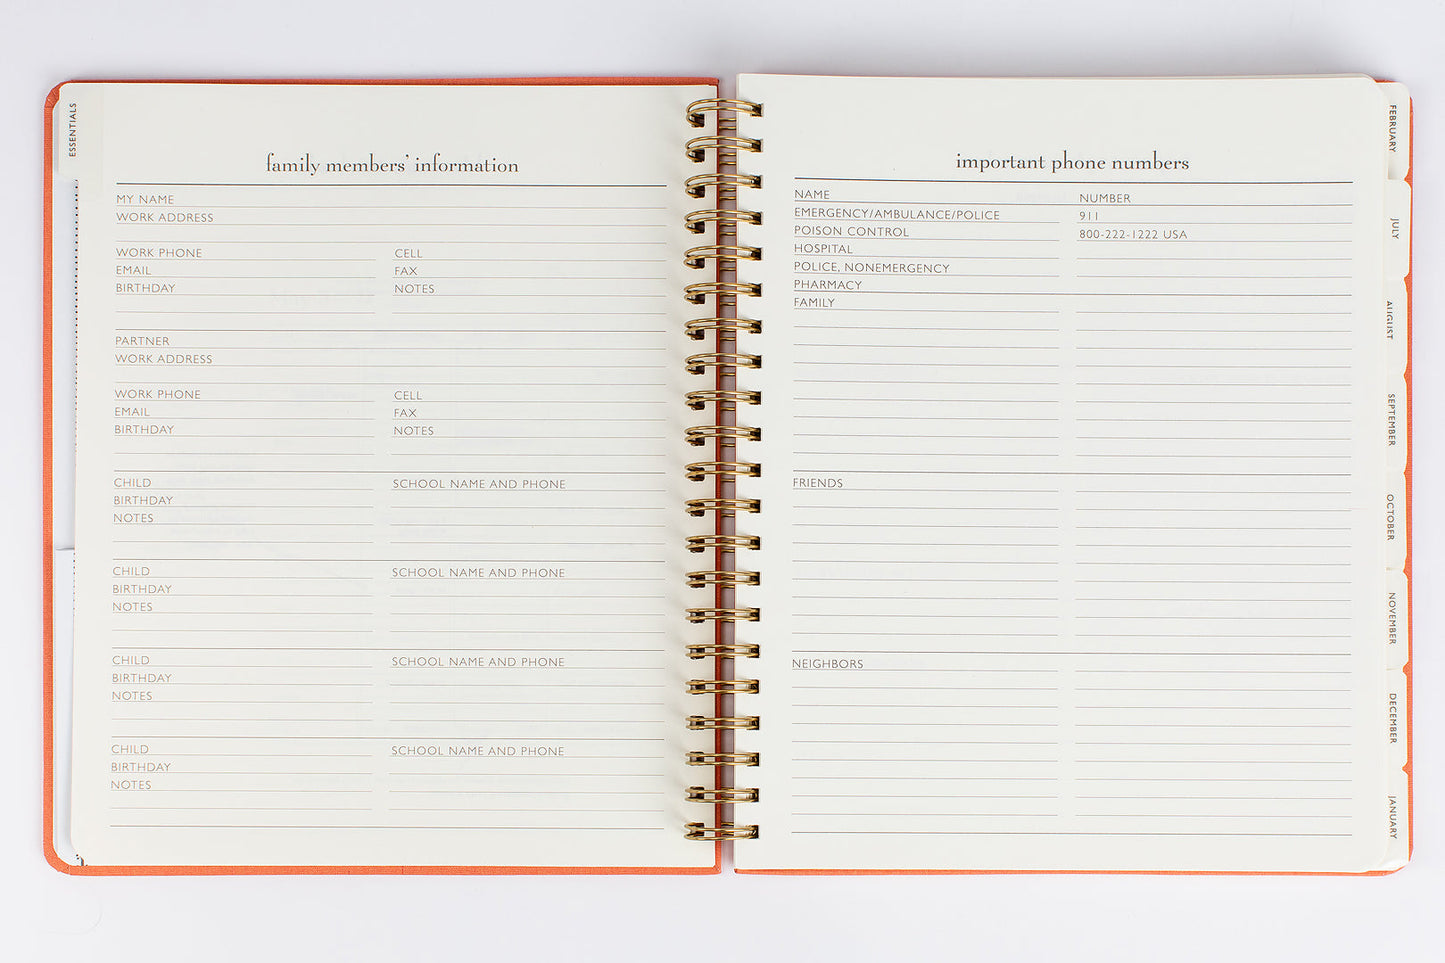 ESSENTIALS
family members' information
MY NAME
WORK ADDRESS
WORK PHONE CELL
EMAIL FAX
BIRTHDAY NOTES
PARTNER
WORK ADDRESS
WORK PHONE CELL
EMAIL FAX
BIRTHDAY NOTES
CHILD SCHOOL NAME AND PHONE
BIRTHDAY
NOTES
CHILD SCHOOL NAME AND PHONE
BIRTHDAY
NOTES
CHILD SCHOOL NAME AND PHONE
BIRTHDAY
NOTES
CHILD SCHOOL NAME AND PHONE
BIRTHDAY
NOTES
important phone numbers
NAME NUMBER
EMERGENCY/AMBULANCE/POLICE 911
POISON CONTROL 800-222-1222 USA
HOSPITAL
POLICE, NONEMERGENCY
PHARMACY
FAMILY
FRIENDS
NEIGHBORS
FEBRUARY
JULY
AUGUST
SEPTEMBER
OCTOBER
NOVEMBER
DECEMBER
JANUARY